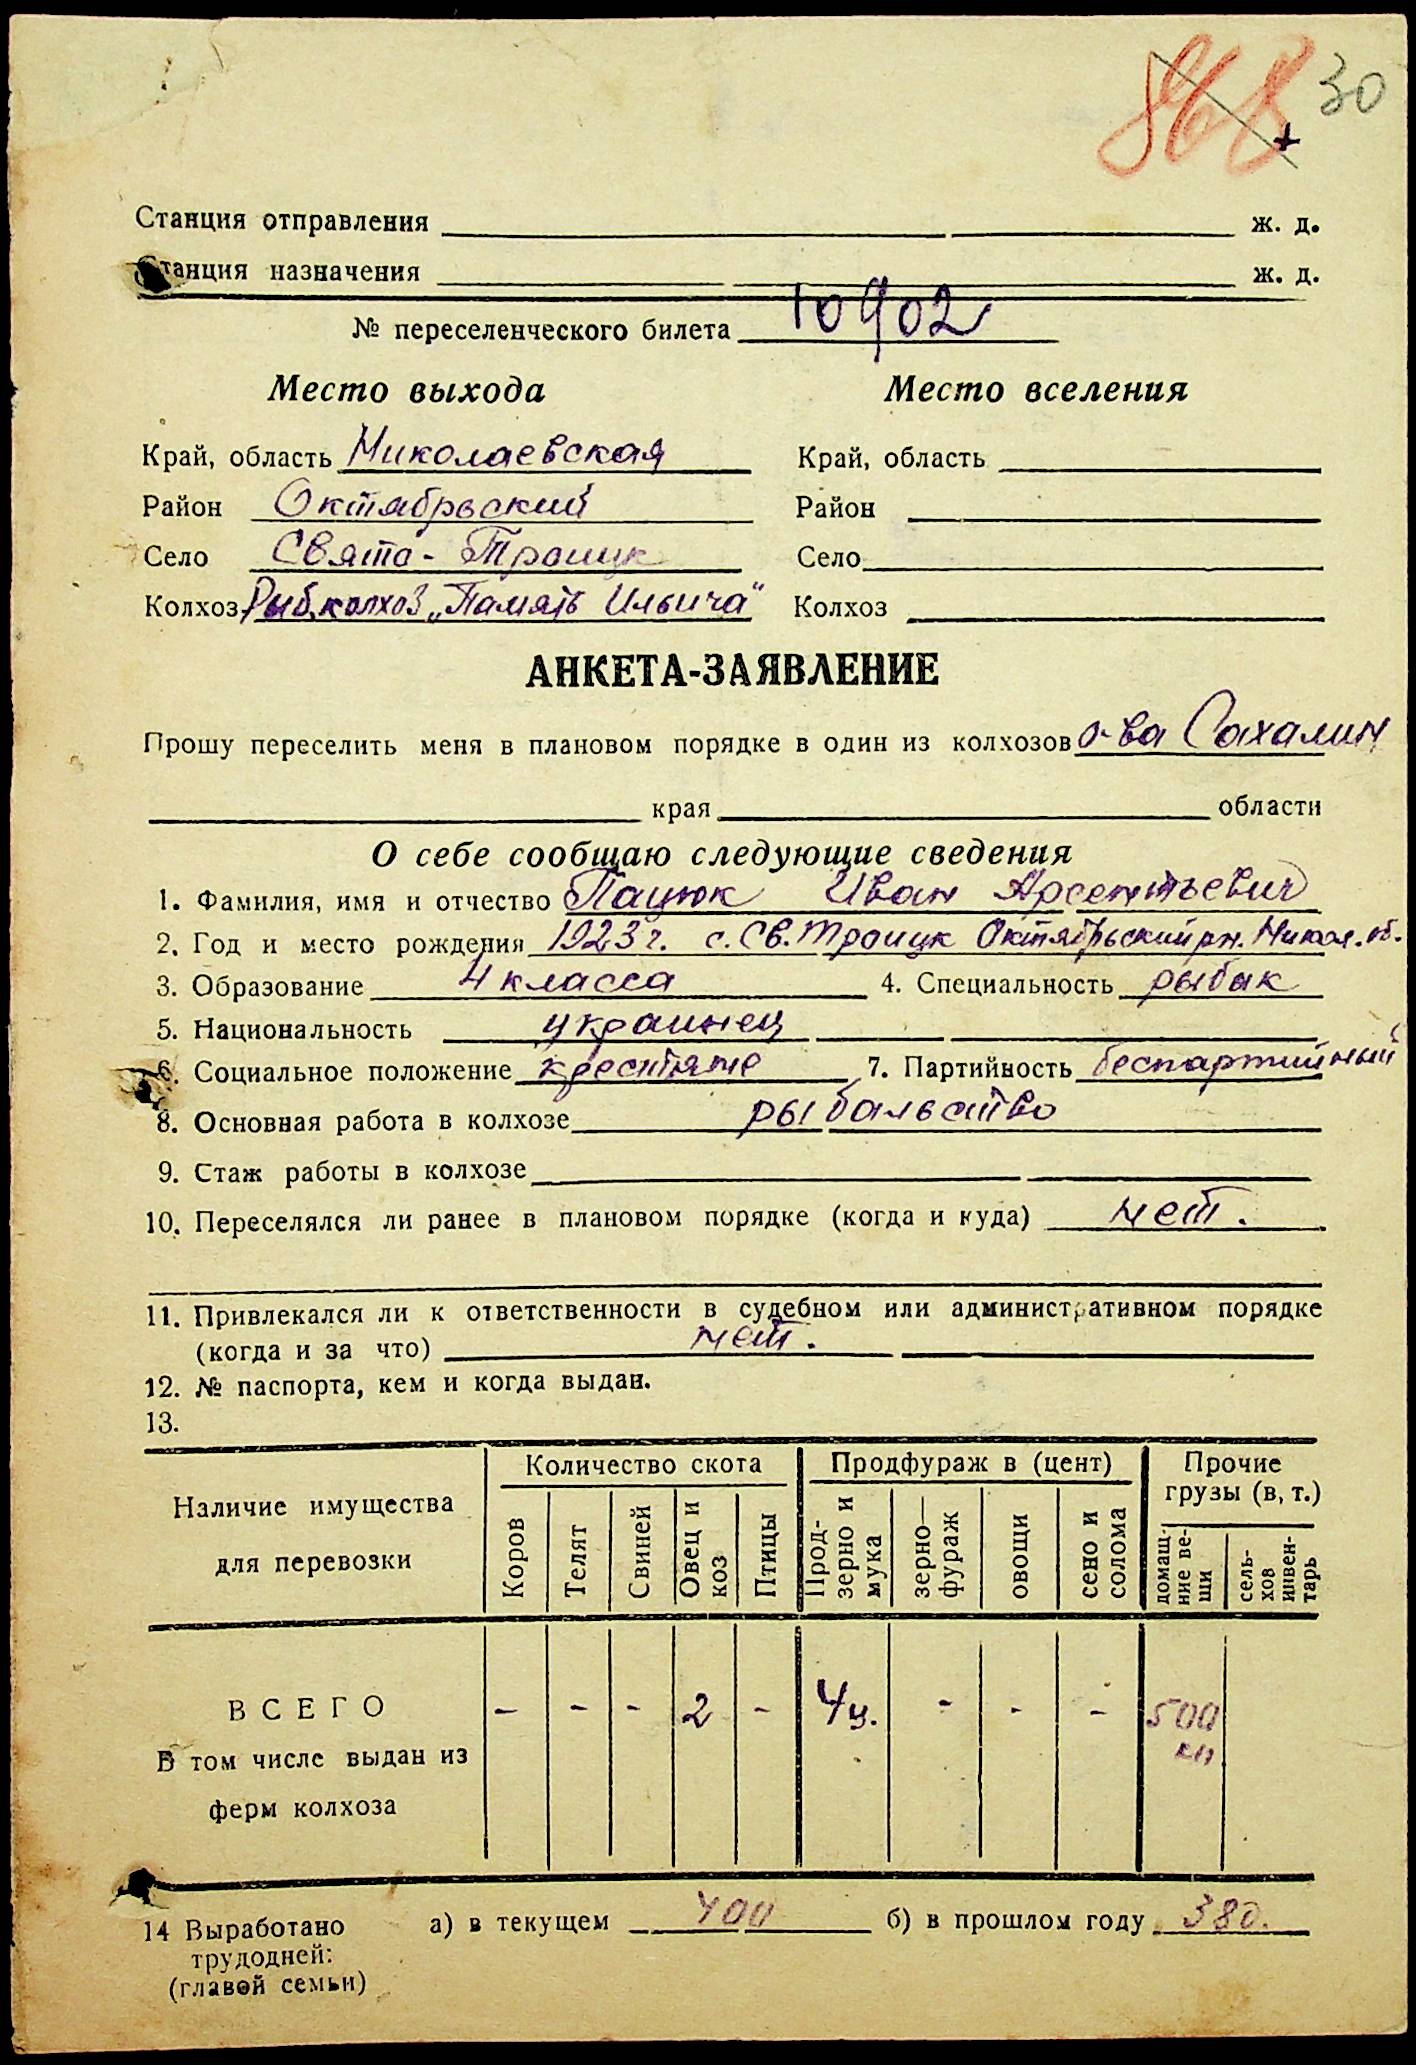 868 30
Станция отправления ж. д.
Станция назначения ж. д.
№ переселенческого билета 10902
Место выхода Место вселения
Край, область Николаевская Край, область
Район Октябрьский Район
Село Свято-Троицк Село
Колхоз Рыб.колхоз „Память Ильича" Колхоз
АНКЕТА-ЗАЯВЛЕНИЕ
Прошу переселить меня в плановом порядке в один из колхозов о-ва Сахалин
края области
О себе сообщаю следующие сведения
1. Фамилия, имя и отчество Пацюк Иван Арсентьевич
2. Год и место рождения 1923 г. с. Св. Троицк Октябрьский рн. Никол. об.
3. Образование 4 класса 4. Специальность рыбак
5. Национальность украинец
6. Социальное положение крестяне 7. Партийность беспартийный
8. Основная работа в колхозе рыбальство
9. Стаж работы в колхозе
10. Переселялся ли ранее в плановом порядке (когда и куда) нет.
11. Привлекался ли к ответственности в судебном или административном порядке
(когда и за что) нет.
12. № паспорта, кем и когда выдан.
13.
Наличие имущества для перевозки
Количество скота Продфураж в (цент) Прочие грузы (в, т.)
Коров Телят Свиней Овец и коз Птицы Прод-зерно и мука зерно—фураж овощи сено и солома домащ-ние ве-щи сель-хов инвен-тарь
ВСЕГО - - - 2 - 4ц. - - - 500 кг
В том числе выдан из
ферм колхоза
14 Выработано а) в текущем 400 б) в прошлом году 380.
трудодней:
(главой семьи)